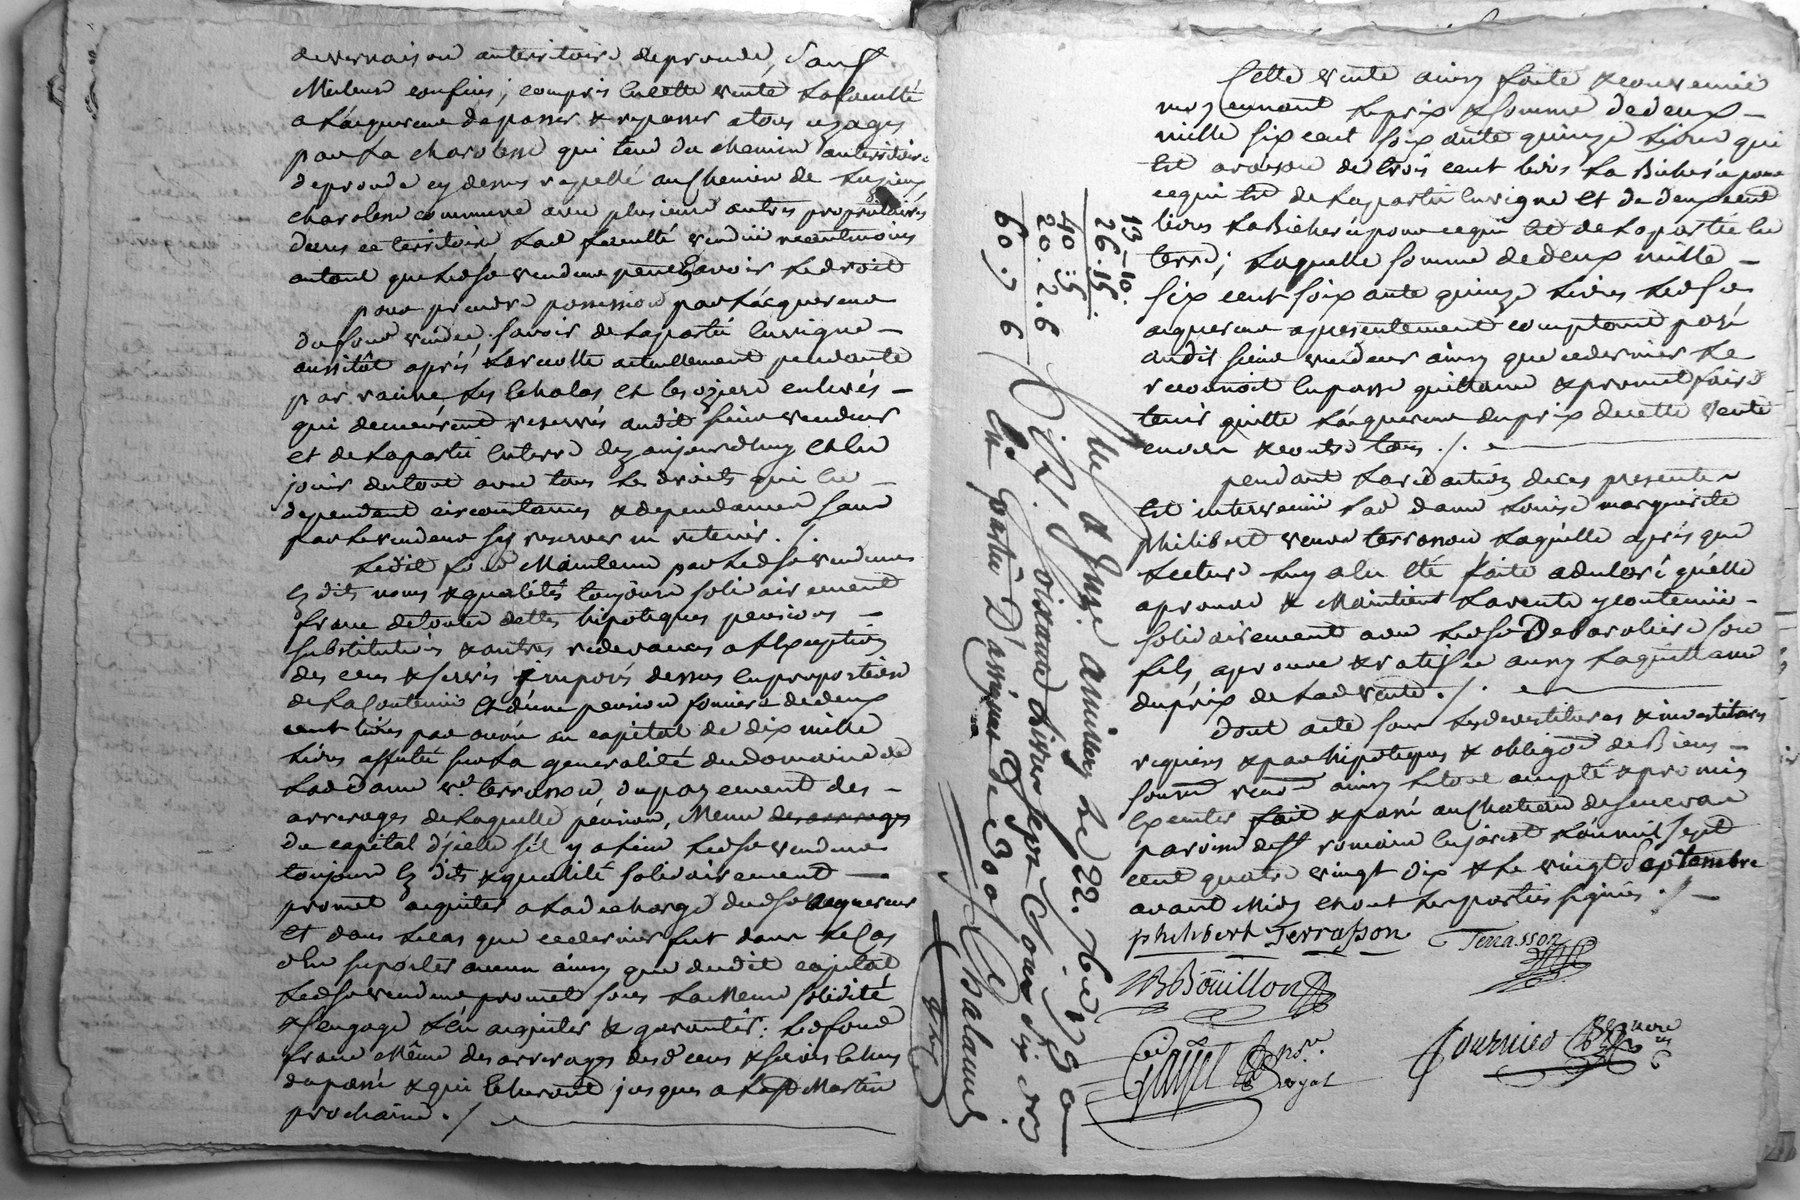 de vernaison au territoire de pronde, sauf
Meilleurs confins; compris en cette vente la faculté
a l'acquereur de passer & repasser a tous usages
par la charolene qui tend du chemin au territoire
de pronde cy dessus rappellé au chemin de
charolene commune avec plusieurs autres proprietaires
dans ce territoire, lad faculté vendue neantmoins
autant que led sr vendeur peut y avoir de droit
pour prendre possession par l'acquereur
du fond vendu, savoir de la partie en vigne
aussitôt après la recolte actuellement pendante
par racine les echalas et les oziers enlevés
qui demeurent reservés audit sieur vendeur
et de la partie en terre dez aujourd'huy et en
jouir du tout avec tous les droits qui en
dependent circonstances & dependances sans
par le vendeur s'y reserver ni retenir ./.
Ledit fond Maintenu par led sr vendeur
ez dits noms & qualités toujours solidairement
franc de toutes dettes hipoteques pensions
substitutions & autres redevances a l'exeption
des cens & servis imposés dessus en proportion
de la contenue et d'une pension fonciere de deux
cent livres par année au capital de dix mille
livres affectée sur la generalité du domaine de
lad dame ve terrasson, du payement des
arrerages de laquelle pension, Meme des arrerages
du capital d'jcelle s'il y a lieu led sr vendeur
toujours ez dits & qualité solidairement
promet acquiter a la decharge dud sr acquereur
et dans le cas que ce dernier fut dans le cas
d'en suporter aucun ainsy que dudit capital
led sr vendeur promet sous la Meme solidité
& s'engage l'en acquiter & garantir: led fond
franc Même des arrerages desd cens & servis echus
du passé & qui echeront jusques a la st Martin
prochaine ./.
13-10.
26.15.
40.5
20.2.6
60.7.6
Cllé & Insé a millery le 22. 7bre 1790
R. Soixante livres sept sous six drs
En partie D'assignat De 300 Chaland
Cette vente ainsy faite & convenue
moyennant le prix & somme de deux
mille six cent soix ante quinze livres qui
est a raison de trois cent livres la Bicherée pour
ce qui est de la partie en vigne et de deux cent
livres la Bicherée pour ce qui est de la partie en
terre; laquelle somme de deux mille
six cent soix ante quinze livres led sr
acquereur a presentement comptant payé
audit sieur vendeur ainsy que ce dernier le
reconnoit en passe quittance & promet faire
tenir quitte l'acquereur du prix de cette vente
envers & contre tous ./.
pendant la redaction de ces presentes
est intervenüe lad dame Louise marguerite
philibert veuve terrasson laquelle après que
lecture luy a en eté faite a declaré qu'elle
aprouve & Maintient la vente y contenüe
solidairement avec led sr De Barolliere son
fils, aprouve & ratifie aussy la quittance
du prix de lad vente ./.
dont acte sous les devestitures & investitures
requises & par hipoteques & obligon de Biens
soumn renon ainsy le tout accepté & promis
executer fait & passé au chateau de senevas
paroisse de st romain en jarest l'an mil sept
cent quatre vingt dix & le vingt Septembre
avant Midy et ont les parties signé ./.
philibert Terrasson Terrasson
Boüillon
Guyot Nore Royal Fournier